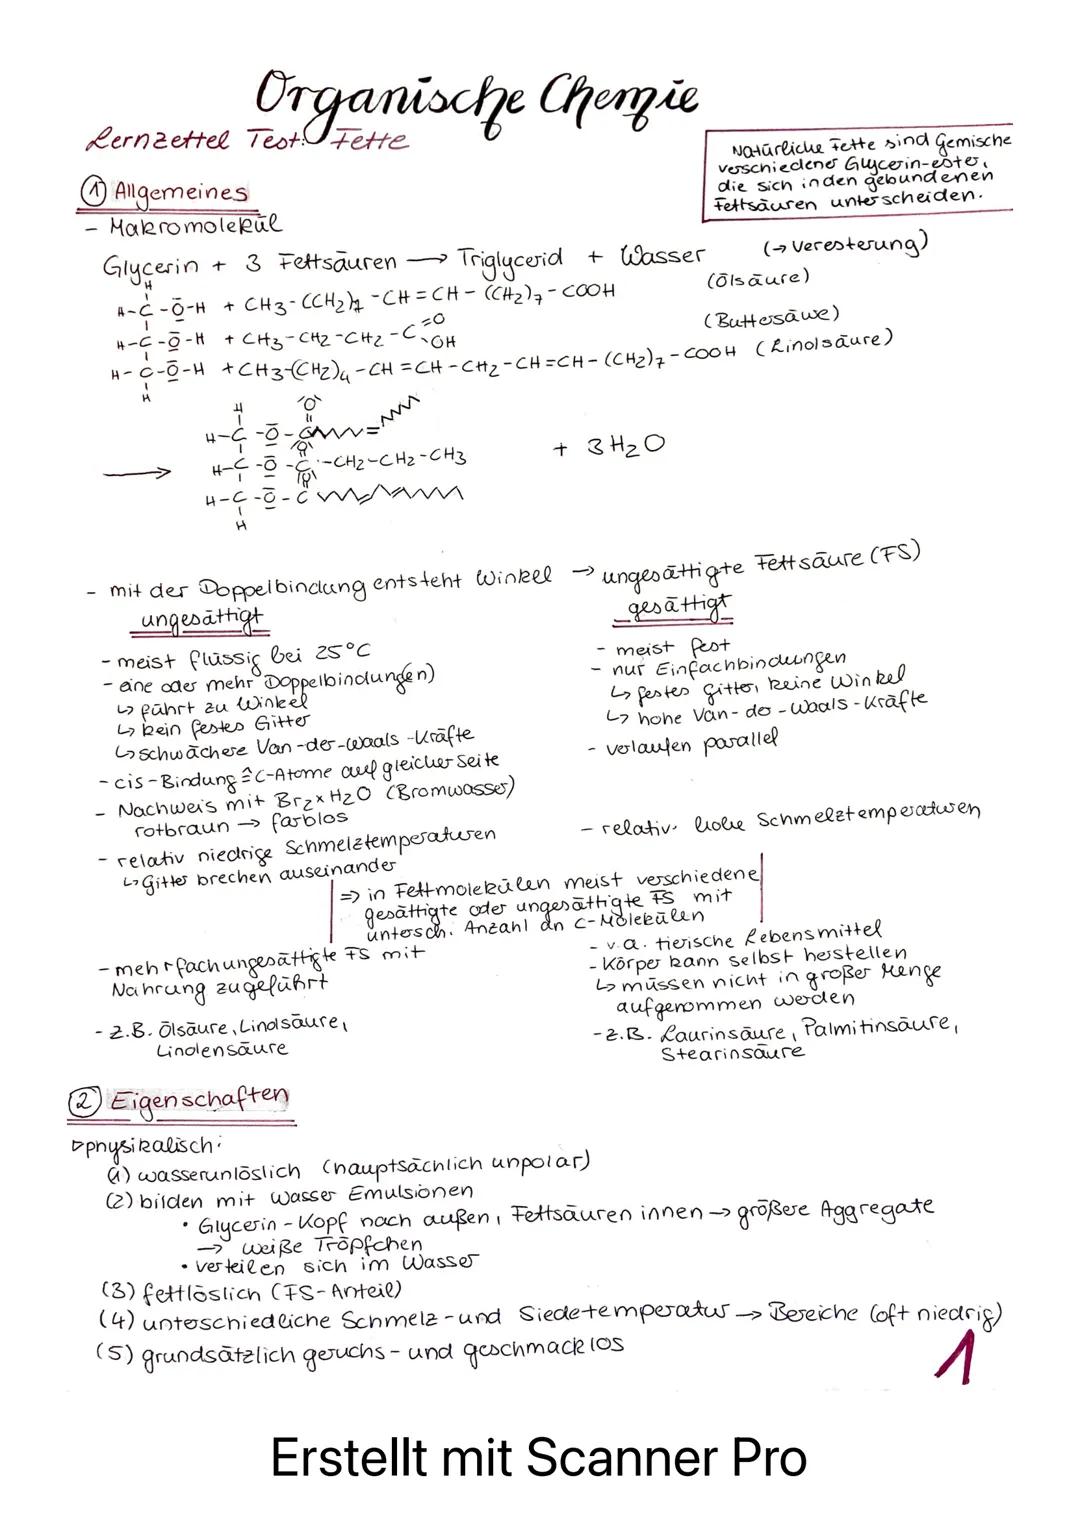 Organische Chemie
Lernzettel Test: Fette
Natürliche Fette sind Gemische
verschiedener Glycerin-ester,
die sich in den gebundenen
Fettsäuren unterscheiden.
① Allgemeines
- Makromolekül
Glycerin + 3 Fettsäuren → Triglycerid + Wasser (→ Veresterung)
H
H-C-O-H + CH3-(CH2)7-CH=CH-(CH2)7-COOH (Ölsäure)
H-C-O-H + CH3-CH2-CH2-C=O OH (Buttersäure)
H-C-O-H + CH3-(CH2)4-CH=CH-CH2-CH=CH-(CH2)7-COOH (Linolsäure)
H
H O
H-C-O-C
O
→ H-C-O-C-CH2-CH2-CH3 + 3H2O
O
H-C-O-C
H
- mit der Doppelbindung entsteht Winkel → ungesättigte Fettsäure (FS)
ungesättigt
- meist flüssig bei 25°C
- eine oder mehr Doppelbindung(en)
↳ führt zu Winkel
↳ kein festes Gitter
↳ schwächere Van-der-Waals-Kräfte
- cis-Bindung ≙ C-Atome auf gleicher Seite
- Nachweis mit Br2×H2O (Bromwasser)
rotbraun → farblos
- relativ niedrige Schmelztemperaturen
↳ Gitter brechen auseinander
gesättigt
- meist fest
- nur Einfachbindungen
↳ festes Gitter, keine Winkel
↳ hohe Van-der-Waals-Kräfte
- verlaufen parallel
- relativ hohe Schmelztemperaturen
⇒ in Fettmolekülen meist verschiedene
gesättigte oder ungesättigte FS mit
untersch. Anzahl an C-Molekülen
- mehrfachungesättigte FS mit
Nahrung zugeführt
- z.B. Ölsäure, Linolsäure,
Linolensäure
- v.a. tierische Lebensmittel
- Körper kann selbst herstellen
↳ müssen nicht in großer Menge
aufgenommen werden
- z.B. Laurinsäure, Palmitinsäure,
Stearinsäure
② Eigenschaften
▷ physikalisch:
(1) wasserunlöslich (hauptsächlich unpolar)
(2) bilden mit Wasser Emulsionen
• Glycerin-Kopf nach außen, Fettsäuren innen → größere Aggregate
→ weiße Tröpfchen
• verteilen sich im Wasser
(3) fettlöslich (FS-Anteil)
(4) unterschiedliche Schmelz- und Siedetemperatur → Bereiche (oft niedrig)
(5) grundsätzlich geruchs- und geschmacklos
1
Erstellt mit Scanner Pro